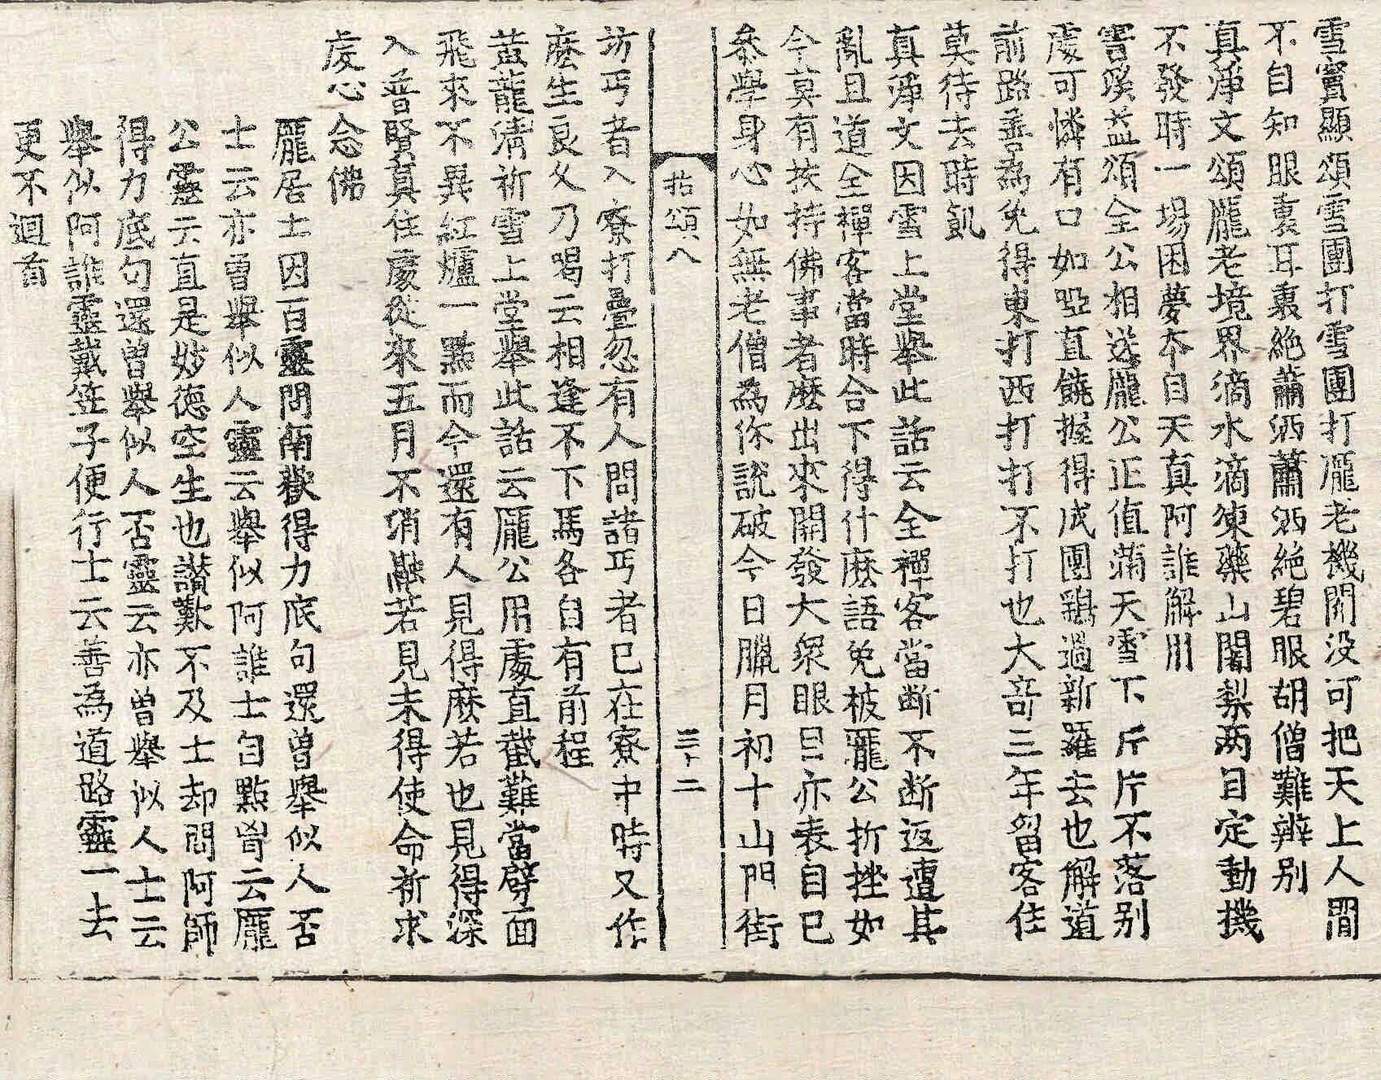 雪竇顯頌雪團打雪團打龐老機關没可把天上人間
不自知眼裏耳裏絶蕭洒蕭洒絶碧眼胡僧難辨别
真淨文頌龐老境界滴水滴凍藥山闍梨两目定動機
不發時一場困夢夲自天真阿誰解用
雲溪益頌全公相送龐公正值滿天雪下片片不落别
處可憐有口如啞直饒握得成團鷂過新羅去也解道
前路善為免得東打西打打不打也大奇三年留客住
莫待去時飢
真淨文因雪上堂舉此話云全禪客當断不断返遭其
亂且道全禪客當時合下得什麽語免被龐公折挫如
今莫有扶持佛事者麽出來開發大衆眼目亦表自已
叅學身心如無老僧為你説破今日臘月初十山門街
拈頌八 三十二
坊丐者入寮打疊忽有人問諸丐者已在寮中時又作
麽生良久乃喝云相逢不下馬各自有前程
黄龍清祈雪上堂舉此話云龐公用處直截難當劈面
飛來不異紅爐一點而今還有人見得麽若也見得深
入普賢真住處從來五月不消融若見未得使命祈求
處心念佛
龐居士因百靈問南歡得力底句還曽舉似人否
士云亦曽舉似人靈云舉似阿誰士自點胷云龐
公靈云直是妙德空生也讃歎不及士却問阿師
得力底句還曽舉似人否靈云亦曽舉似人士云
舉似阿誰靈戴笠子便行士云善為道路靈一去
更不迴首